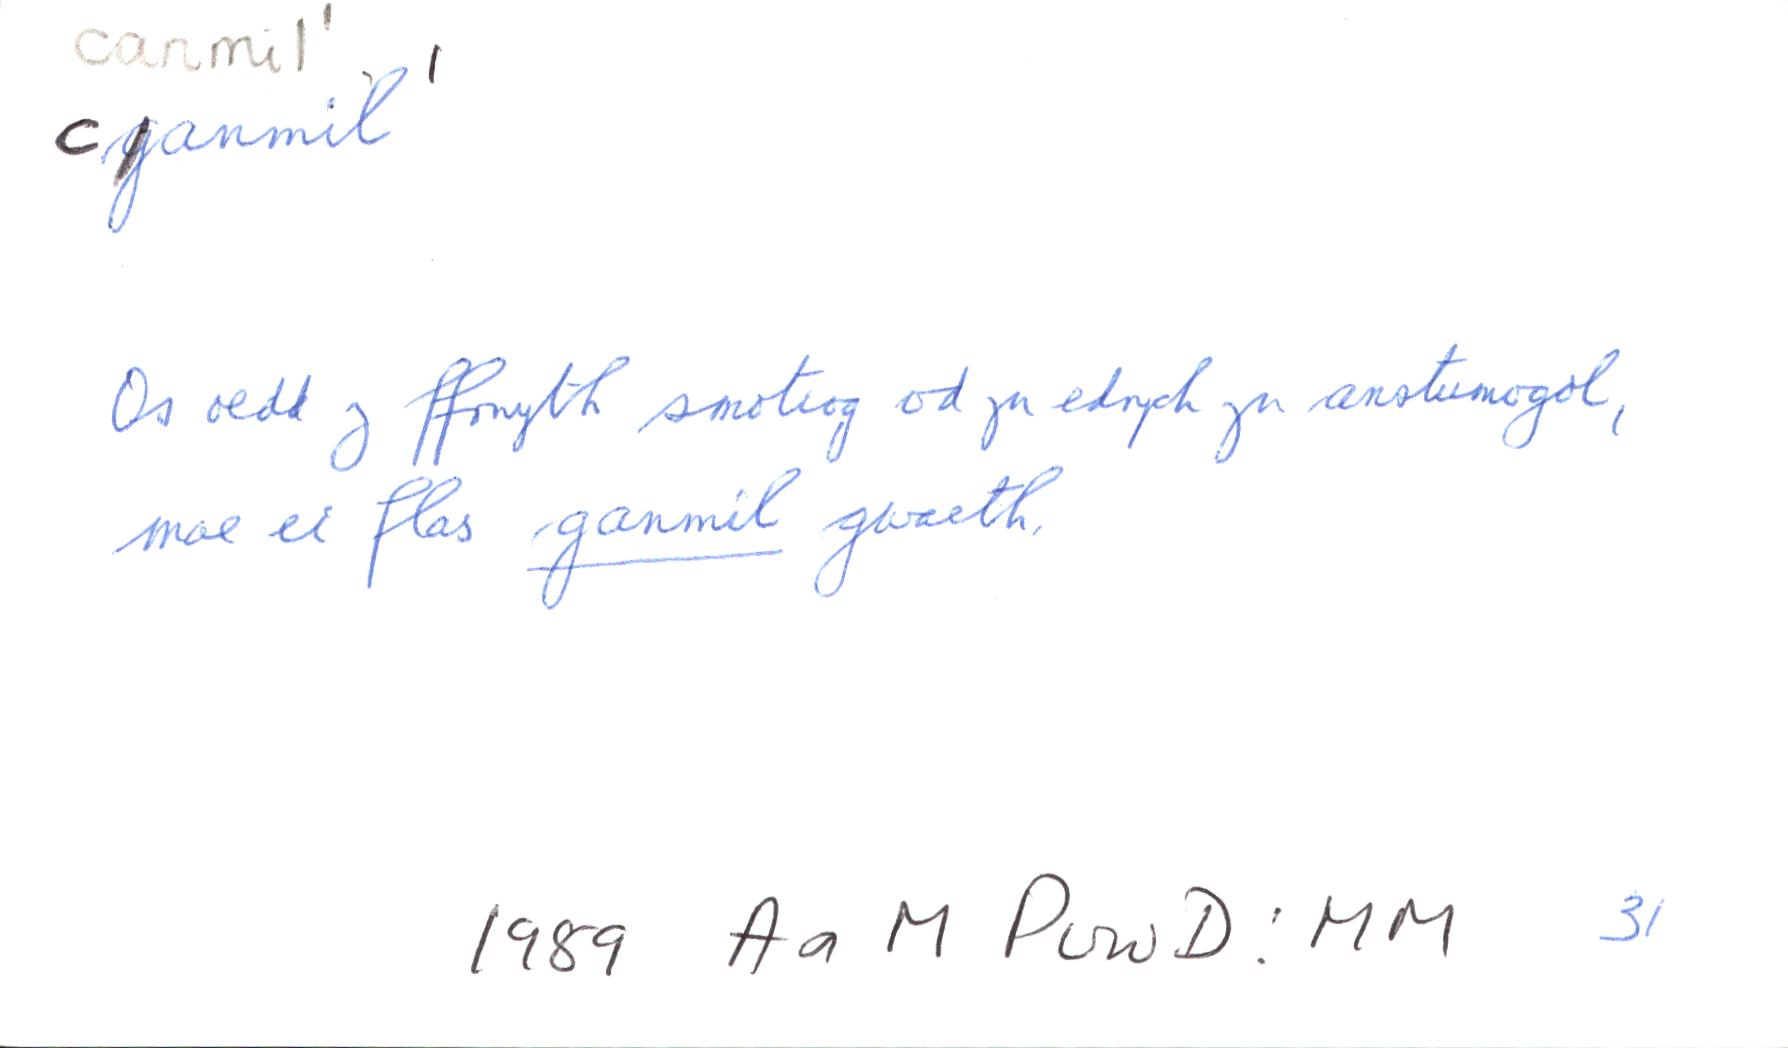 canmil'
c ganmil '
Os oedd y ffrwyth smotiog od yn edrych yn anstumogol,
mae ei flas ganmil gwaeth.
1989 A a M PowD: MM 31